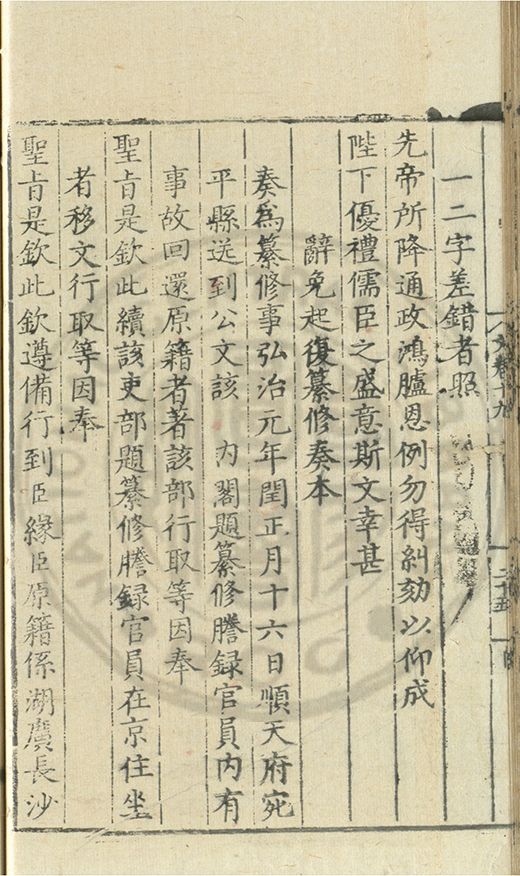 文卷十九
二十五
一二字差錯者照
先帝所降通政鴻臚恩例勿得糾劾以仰成
陛下優禮儒臣之盛意斯文幸甚
辭免起復纂修奏本
奏為纂修事弘治元年閏正月十六日順天府宛
平縣送到公文該 內閣題纂修謄録官員內有
事故回還原籍者著該部行取等因奉
聖㫖是欽此續該吏部題纂修謄録官員在京住坐
者移文行取等因奉
聖㫖是欽此欽遵備行到臣緣臣原籍係湖廣長沙